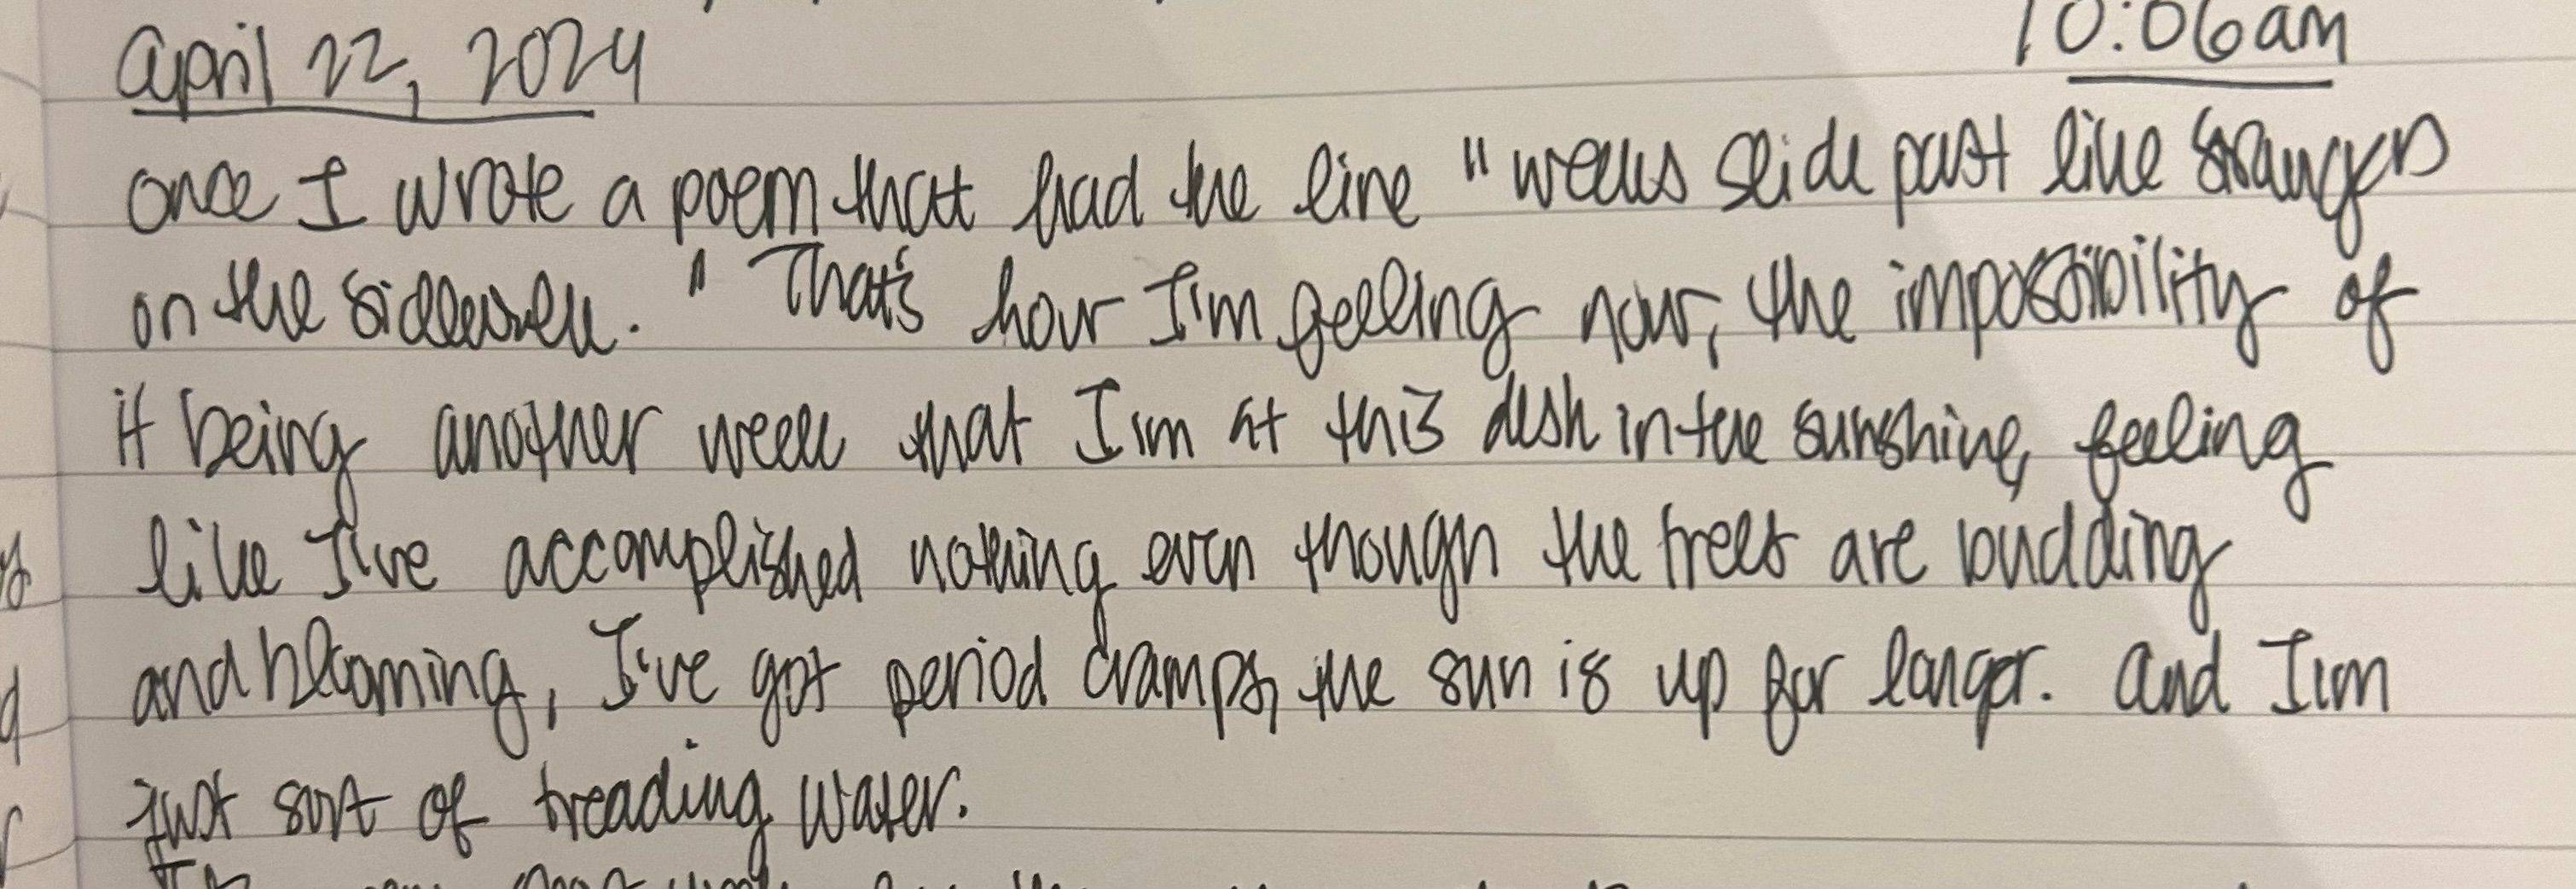 April 22, 2024
10:06am
once I wrote a poem that had the line "weeks slide past like strangers
on the sidewalk." That's how I'm feeling now, the impossibility of
it being another week that I'm at this desk in the sunshine, feeling
like I've accomplished nothing even though the trees are budding
and blooming, I've got period cramps, the sun is up for longer. And I'm
just sort of treading water.